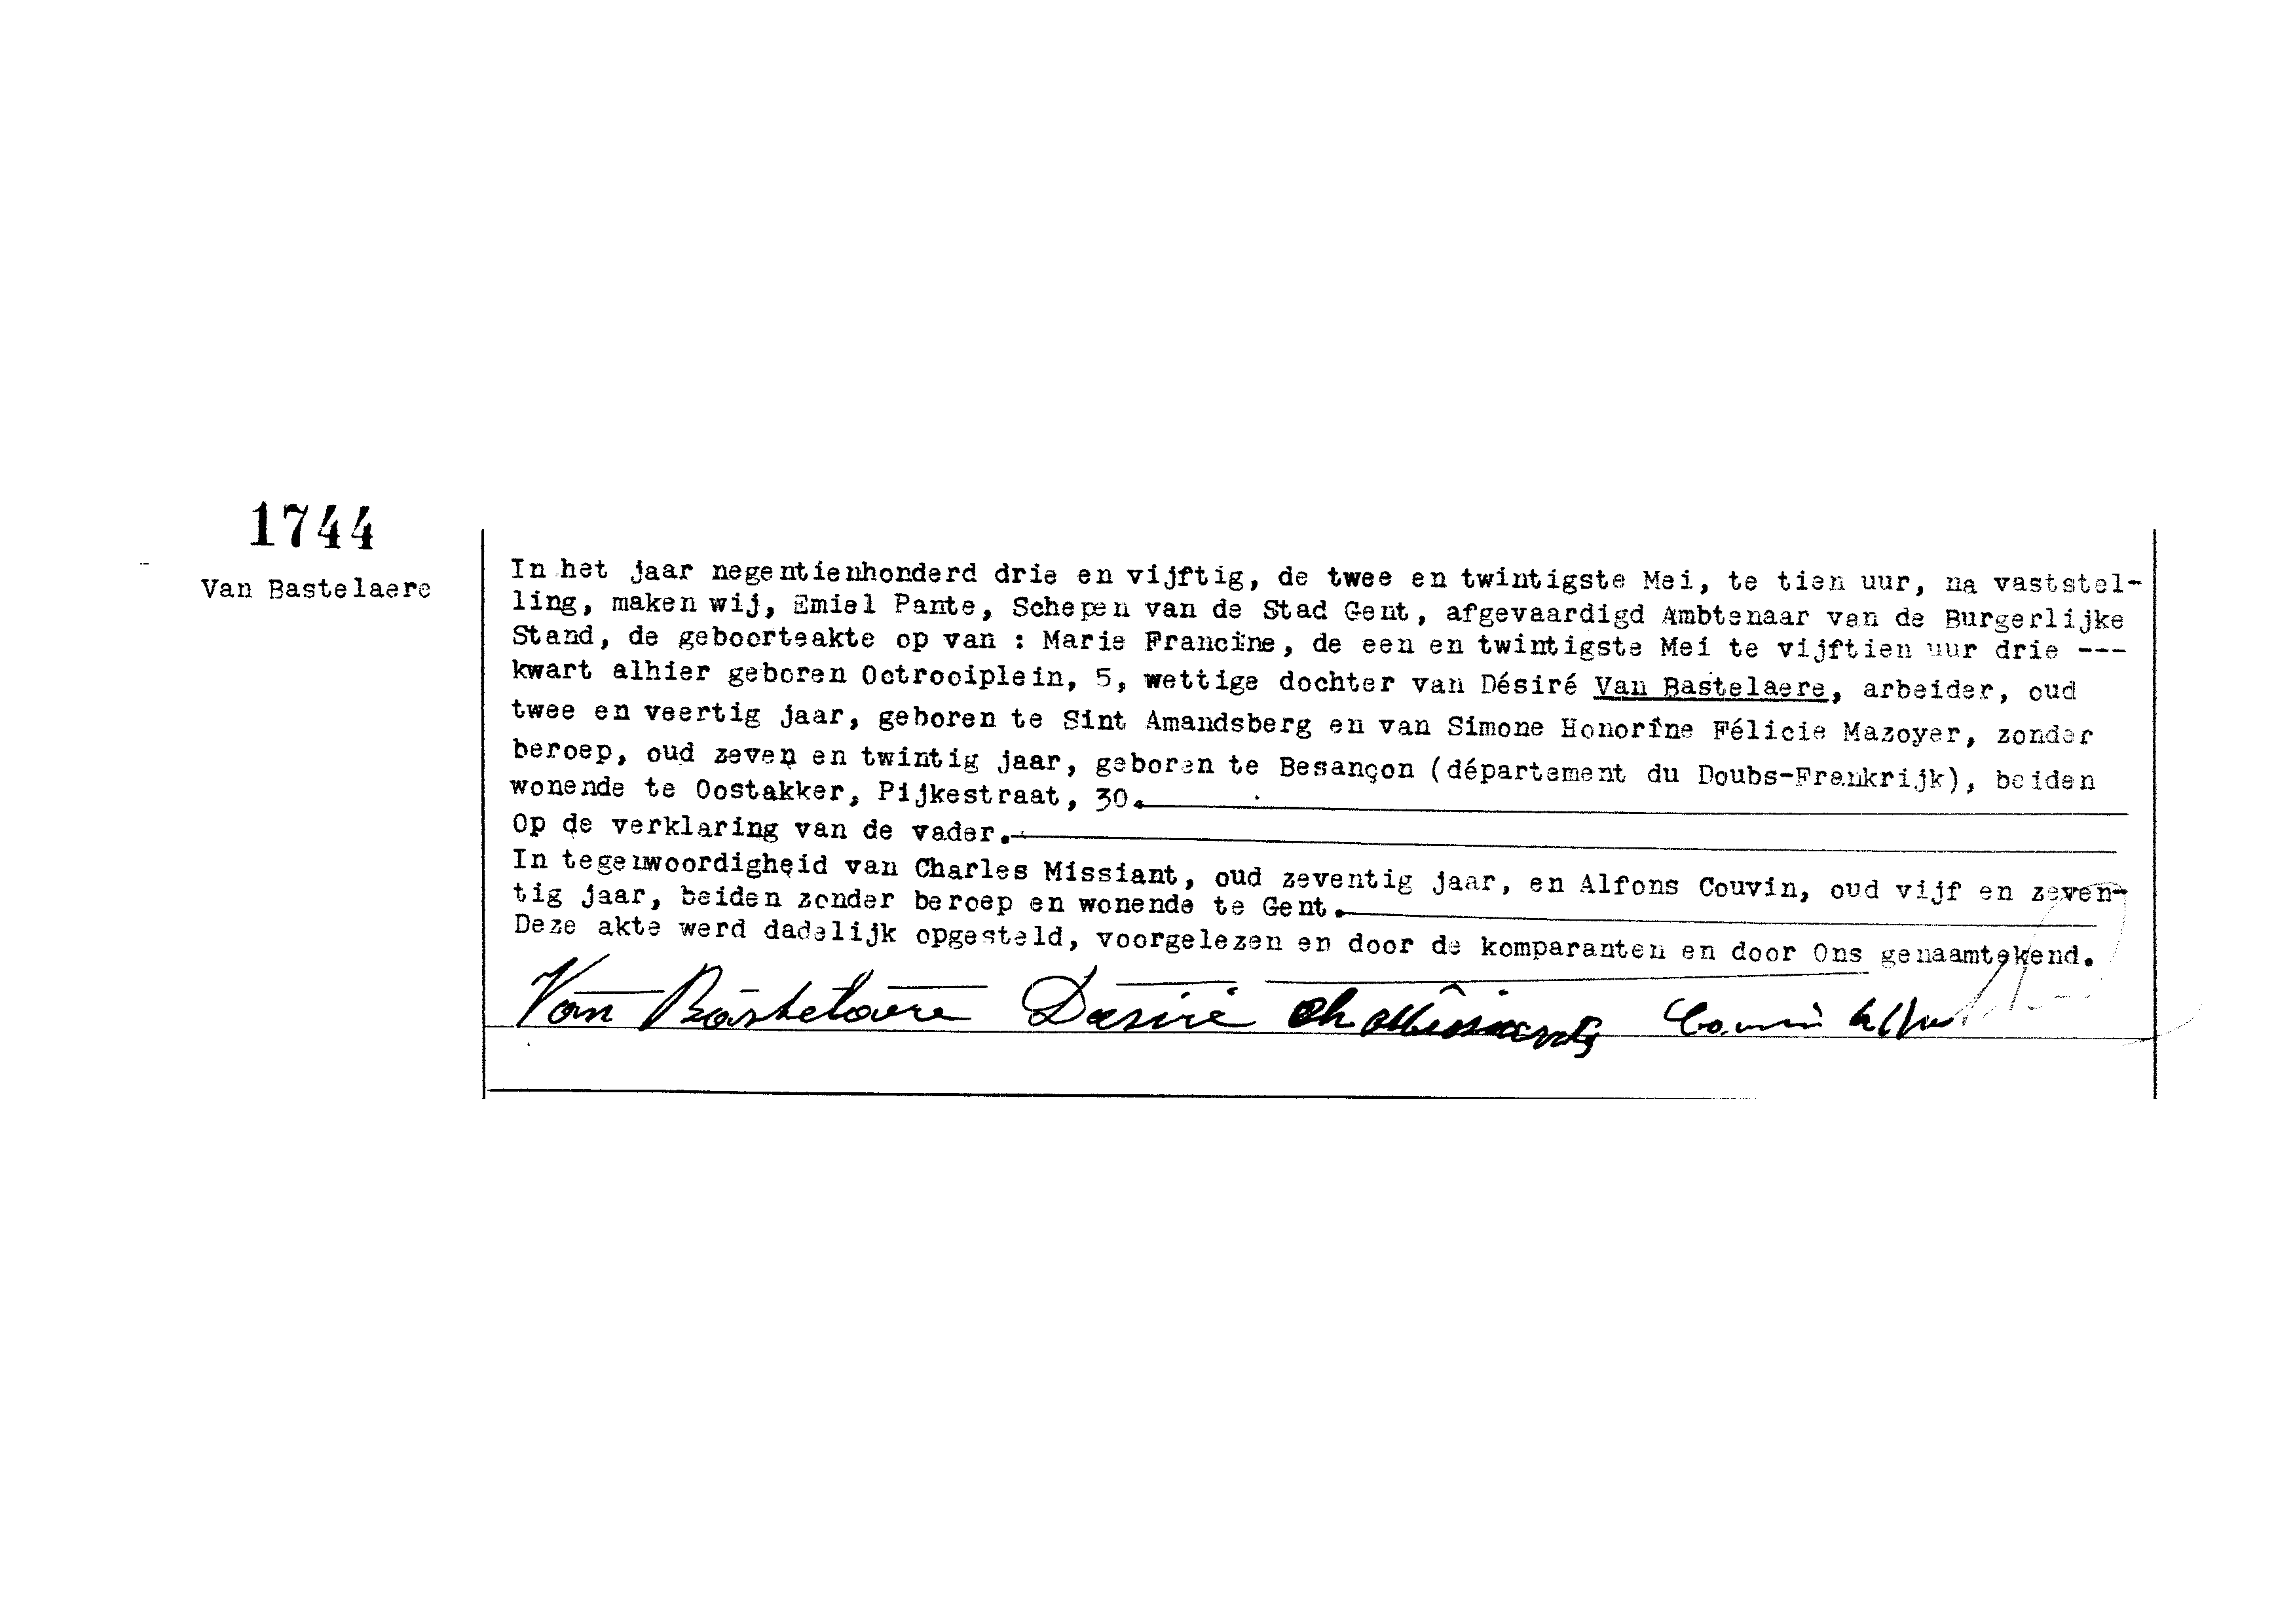 1744
Van Bastelaere
In het jaar negentienhonderd drie en vijftig, de twee en twintigste Mei, te tien uur, na vaststel-
ling, maken wij, Emiel Pante, Schepen van de Stad Gent, afgevaardigd Ambtenaar van de Burgerlijke
Stand, de geboorteakte op van : Marie Francine, de een en twintigste Mei te vijftien uur drie ---
kwart alhier geboren Octrooiplein, 5, wettige dochter van Désiré Van Bastelaere, arbeider, oud
twee en veertig jaar, geboren te Sint Amandsberg en van Simone Honorine Félicie Mazoyer, zonder
beroep, oud zeven en twintig jaar, geboren te Besançon (département du Doubs-Frankrijk), beiden
wonende te Oostakker, Pijkestraat, 30.
Op de verklaring van de vader.
In tegenwoordigheid van Charles Missiant, oud zeventig jaar, en Alfons Couvin, oud vijf en zeven-
tig jaar, beiden zonder beroep en wonende te Gent.
Deze akte werd dadelijk opgesteld, voorgelezen en door de komparanten en door Ons genaamtekend.
Van Bastelaere Desiré Ch Missiant Couvin